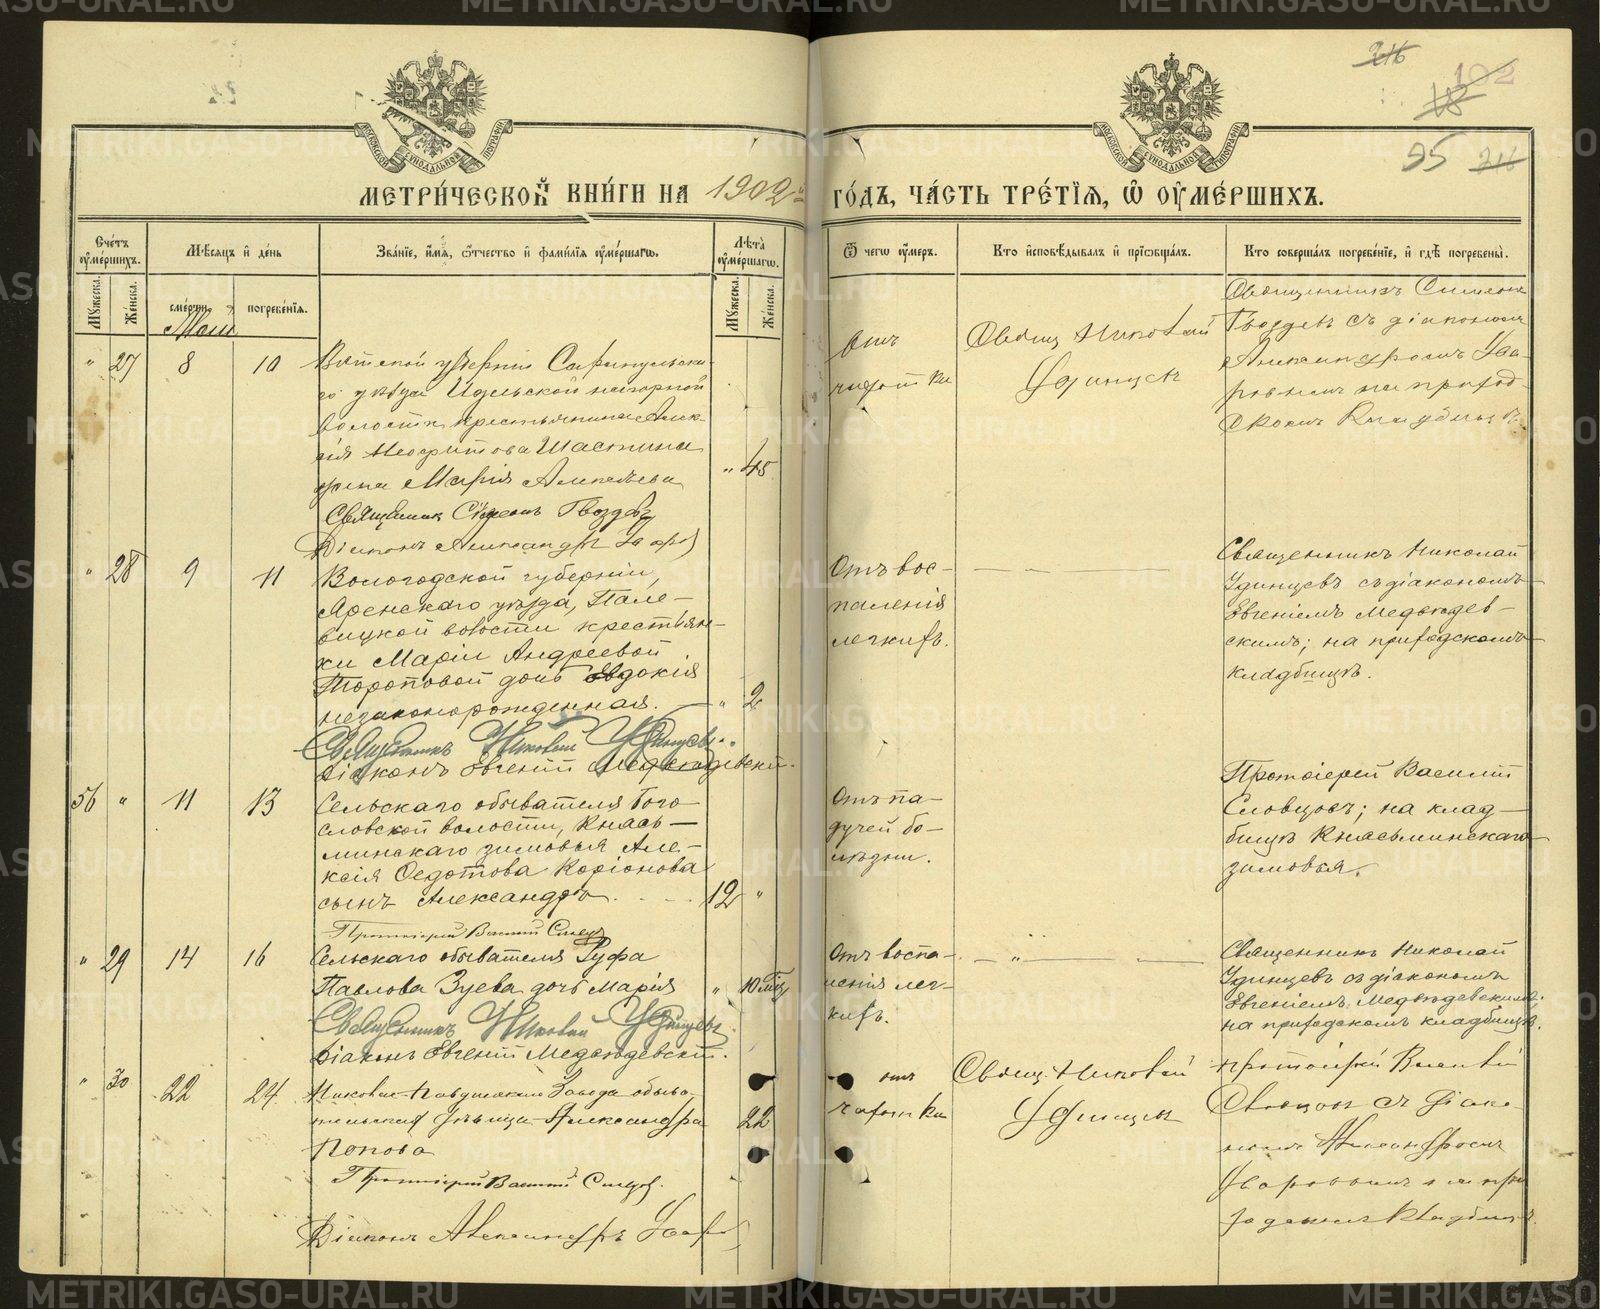 METRIKI.GASO-URAL.RU
МЕТРИ́ЧЕСКОЙ КНИ́ГИ НА 1902 ГО́ДЪ, ЧА́СТЬ ТРЕ́ТЇѦ, Ѡ҆ ОУ҆МЕ́РШИХЪ.
Сче́тъ оу҆ме́ршихъ.
Мꙋжеска.
Же́нска.
Мѣсѧцъ и҆ де́нь
сме́рти.
погребе́нїѧ.
Зва́нїе, и҆́мѧ, ѻ҆́тчество и҆ фами́лїѧ оу҆ме́ршагѡ.
Лѣ́та оу҆ме́ршагѡ.
Мꙋжеска.
Же́нска.
Ѿ чегѡ̀ оу҆́меръ.
Кто̀ и҆сповѣ́дывалъ и҆ прїѡбща́лъ.
Кто̀ соверша́лъ погребе́нїе, и҆ гдѣ̀ погребены̀.
102
18
95
216
Май
" 27 8 10
Вятской губерніи Сарапульска-
го уѣзда
волости крестьянина Алек-
сія Неофитова Шастина
жена Марія Алексѣева
" 45
Священник Симеонъ Гвоздевъ
Діаконъ Александръ Уваров
отъ
чахотки
Свящ Николай
Удинцевъ
Священникъ Симеонъ
Гвоздевъ съ діакономъ
Александромъ Ува-
ровымъ на приход-
скомъ кладбищѣ
" 28 9 11
Вологодской губерніи,
Яренскаго уѣзда, Пале-
вицкой волости крестьян-
ки Маріи Андреевой
Тороповой дочь Евдокія
незаконорожденная.
" 2
Священникъ Николай Удинцевъ.
Діаконъ Евгеній Медвѣдевскій.
Отъ вос-
паленія
легкихъ.
Священникъ Николай
Удинцевъ съ діакономъ
Евгеніемъ Медвѣдев-
скимъ; на приходскомъ
кладбищѣ.
56 " 11 13
Сельскаго обывателя Бого-
словской волости, Княсь-
минскаго зимовья Але-
ксія Ѳедотова Коріонова
сынъ Александръ
12 "
Протоіерей Василій Словцов
Отъ па-
дучей бо-
лѣзни.
Протоіерей Василій
Словцовъ; на клад-
бищѣ Княсьминскаго
зимовья.
" 29 14 16
Сельскаго обывателя Руфа
Павлова Зуева дочь Марія
" 10 мѣс
Священникъ Николай Удинцевъ
Діаконъ Евгеній Медвѣдевскій.
Отъ воспа-
ленія лег-
кихъ.
Священникъ Николай
Удинцевъ съ діакономъ
Евгеніемъ Медвѣдевскимъ;
на приходскомъ кладбищѣ.
" 30 22 24
Николае-Павдинскаго Завода обыва-
тельская дѣвица Александра
Попова
22
Протоіерей Василій Словцов.
Діаконъ Александръ Уваров
отъ
чахотки
Свящ. Николай
Удинцевъ
Протоіерей Василій
Словцовъ съ діако-
номъ Александромъ
Уваровымъ на при
ходскомъ кладбищѣ